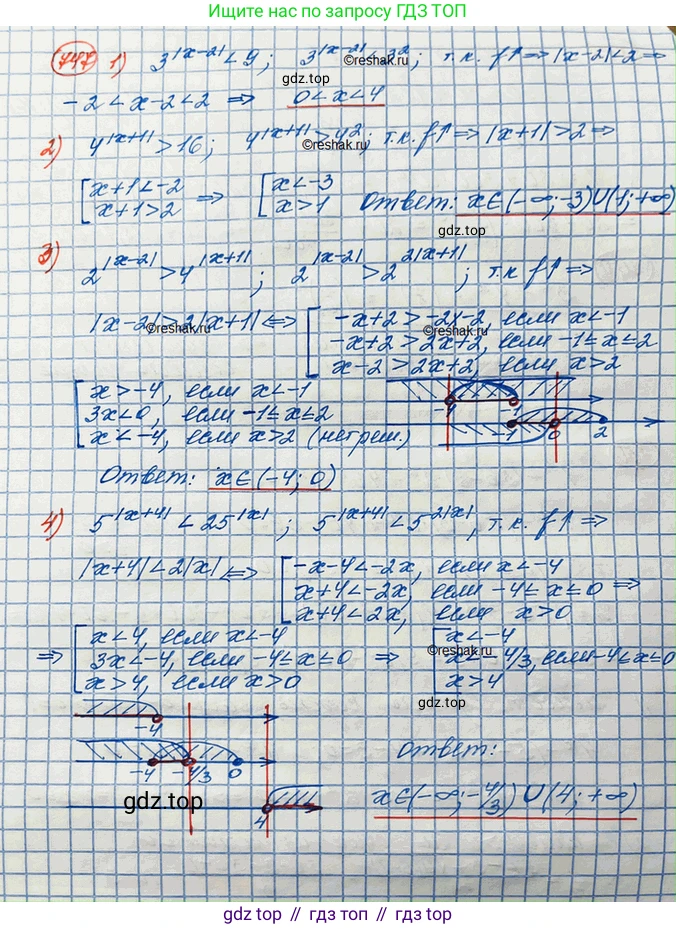 Ищите нас по запросу ГДЗ ТОП
747 1) 3^|x-2| < 9; 3^|x-2| < 3²; т.к. f↑ ⇒ |x-2| < 2 ⇒
gdz.top
©reshak.ru
-2 < x-2 < 2 ⇒ 0 < x < 4
2) 4^|x+1| > 16; 4^|x+1| > 4²; т.к. f↑ ⇒ |x+1| > 2 ⇒
©reshak.ru
[ x+1 < -2 ⇒ [ x < -3
x+1 > 2 x > 1 Ответ: x∈(-∞;-3)∪(1;+∞)
gdz.top
3) 2^|x-2| > 4^|x+1| ; 2^|x-2| > 2^2|x+1| ; т.к f↑ ⇒
|x-2| > 2|x+1| ⇔ [ -x+2 > -2x-2, если x < -1
©reshak.ru ©reshak.ru
-x+2 > 2x+2, если -1 ≤ x ≤ 2
x-2 > 2x+2, если x > 2
[ x > -4, если x < -1
3x < 0, если -1 ≤ x ≤ 2
x < -4, если x > 2 (нет реш.)
-4 -1
-1 0 2
Ответ: x∈(-4; 0)
4) 5^|x+4| < 25^|x| ; 5^|x+4| < 5^2|x| , т.к. f↑ ⇒
|x+4| < 2|x| ⇔ [ -x-4 < -2x, если x < -4
x+4 < -2x, если -4 ≤ x ≤ 0 ⇒
x+4 < 2x, если x > 0
⇒ [ x < 4, если x < -4
3x < -4, если -4 ≤ x ≤ 0
x > 4, если x > 0
⇒ [ x < -4
©reshak.ru
x < -4/3, если -4 ≤ x ≤ 0
x > 4
gdz.top
-4
-4 -4/3 0
4
gdz.top
Ответ:
x∈(-∞; -4/3) ∪ (4; +∞)
gdz top // гдз топ // gdz.top // гдз топ // gdz.top